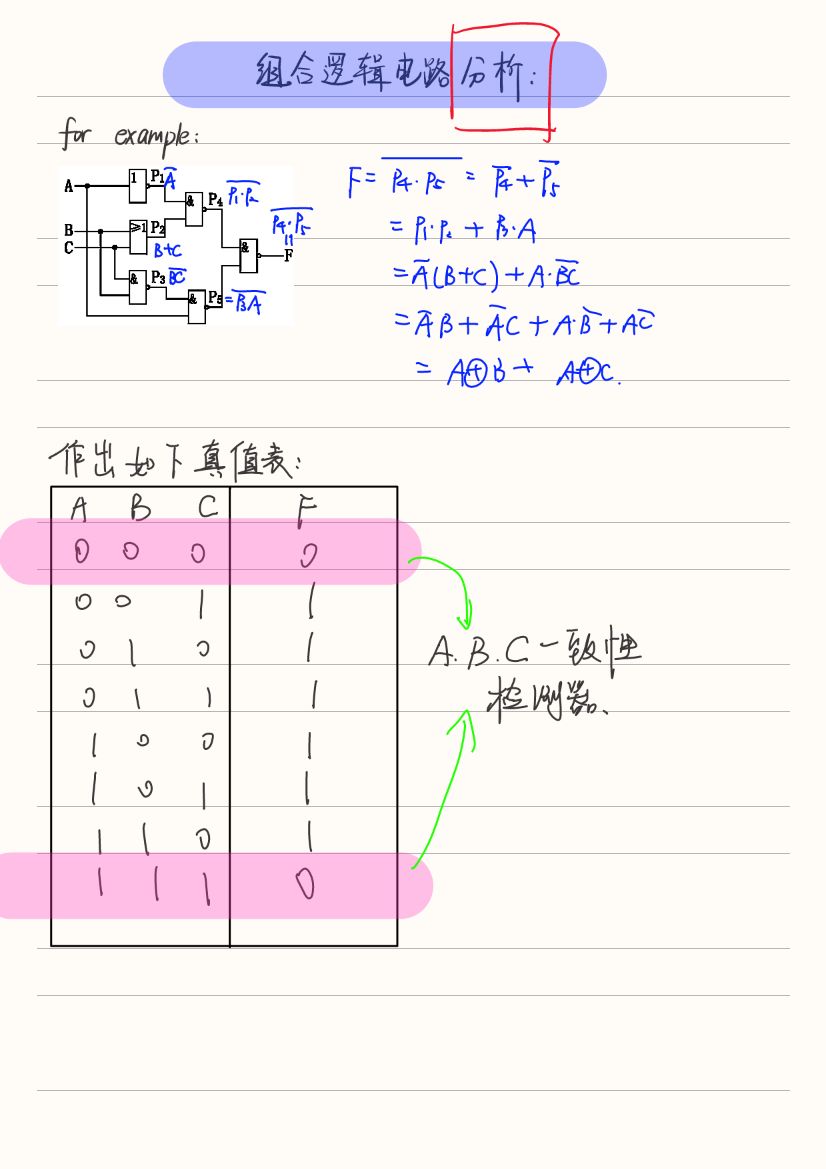 组合逻辑电路分析:
for example:
A
B
C
1
P₁ A̅
≥1
P₂
B+C
&
P₃ \overline{BC}
&
P₄ \overline{P₁·P₂}
&
P₅ = \overline{P₃A}
\overline{P₄·P₅}
=
&
F
F = \overline{P₄·P₅} = \overline{P₄} + \overline{P₅}
= P₁·P₂ + P₃·A
= A̅(B+C) + A·\overline{BC}
= A̅B + A̅C + A·B̅ + AC̅
= A⊕B + A⊕C.
作出如下真值表:
A B C F
0 0 0 0
0 0 1 1
0 1 0 1
0 1 1 1
1 0 0 1
1 0 1 1
1 1 0 1
1 1 1 0
A.B.C一致性
检测器、